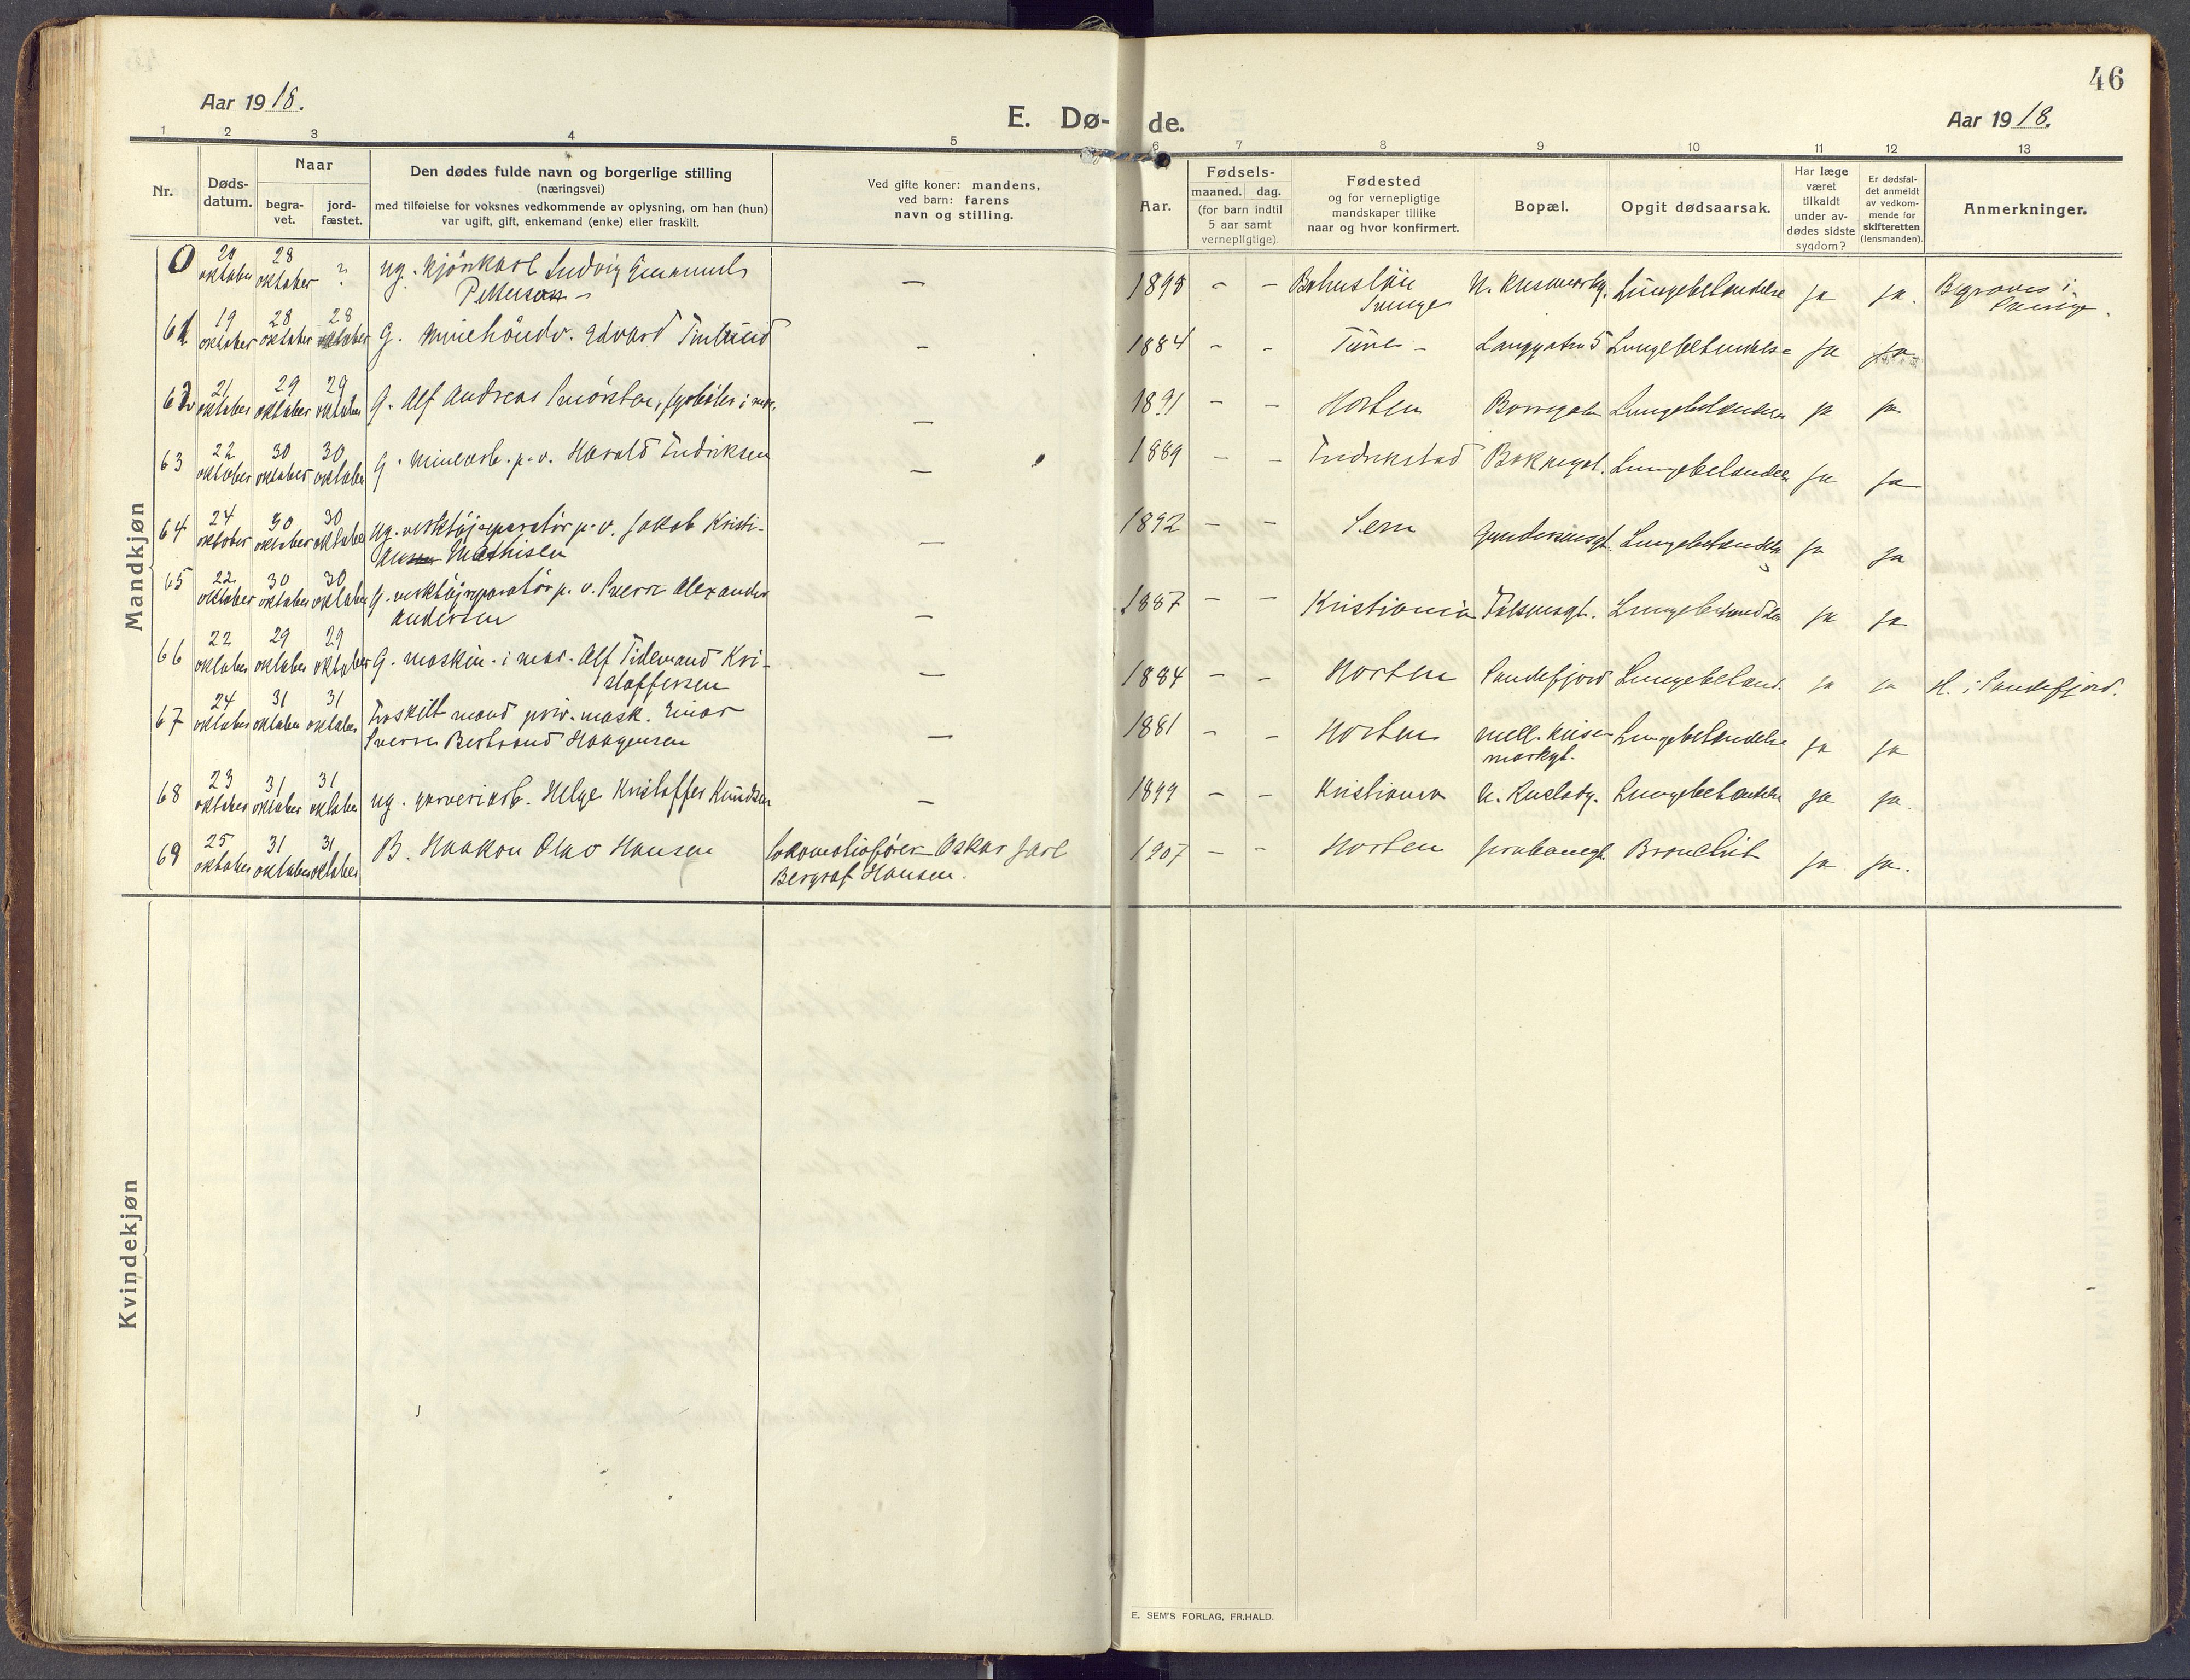 46
Aar 1918.
E. Dø- de.
Aar 1918.
1 2 3 4 5 6 7 8 9 10 11 12 13
Nr.
Døds-
datum.
Naar
begra-
vet.
jord-
fæstet.
Den dødes fulde navn og borgerlige stilling
(næringsvei)
med tilføielse for voksnes vedkommende av oplysning, om han (hun)
var ugift, gift, enkemand (enke) eller fraskilt.
Ved gifte koner: mandens,
ved barn: farens
navn og stilling.
Aar.
Fødsels-
maaned. dag.
(for barn indtil
5 aar samt
vernepligtige)
Fødested
og for vernepligtige
mandskaper tillike
naar og hvor konfirmert.
Bopæl.
Opgit dødsaarsak.
Har læge
været
tilkaldt
under av-
dødes sidste
sygdom?
Er dødsfal-
det anmeldt
av vedkom-
mende for
skifteretten
(lensmanden).
Anmerkninger.
Mandkjøn
0 oktober 28 oktober ? ug. Ludvig Emanuel
Petterson — — - - Lungebetændelse ja ja. Begraves i
61 19 oktober 28 oktober 28 oktober G. minehåndv. Edvard — 1884 - - Tune - Langgaten 5 Lungebetændelse ja ja
62 21 oktober 29 oktober 29 oktober G. Alf Andreas — 1891 - - Horten Borregaten Lungebetændelse ja ja
63 22 oktober 30 oktober 30 oktober G. minearb. p. v. Harald Fredriksen — 1889 - - Fredrikstad Bakkegat. Lungebetændelse ja ja
64 24 oktober 30 oktober 30 oktober ug. p. v. Jakob Kristi-
Mathisen — 1892 - - Sem Gundersensgt. Lungebetændelse ja ja
65 22 oktober 30 oktober 30 oktober G. p. v. Sverre Alexander
Andersen — 1887 - - Kristiania Falsensgt. Lungebetændelse ja ja
66 22 oktober 29 oktober 29 oktober G. maskin. i mar. Alf Tidemand Kri-
stoffersen — 1884 - - Horten Sandefjord Lungebetænd. ja ja H. i Sandefjord.
67 24 oktober 31 oktober 31 oktober Fraskilt mand priv. mask. Einar
Sverre Bertrand Haagensen — 1881 - - Horten mell.
markgt. Lungebetændelse ja ja
68 23 oktober 31 oktober 31 oktober ug. garveriarb. Helge Kristoffer Knudsen — 1899 - - Kristiania Lungebetændelse ja ja.
69 25 oktober 31 oktober 31 oktober B. Haakon Olav Hansen lokomotivfører Oskar Jarl
Hansen. 1907 - - Horten Jernbanegt. Bronchit ja ja.
Kvindekjøn
E. SEM'S FORLAG, FR.HALD.